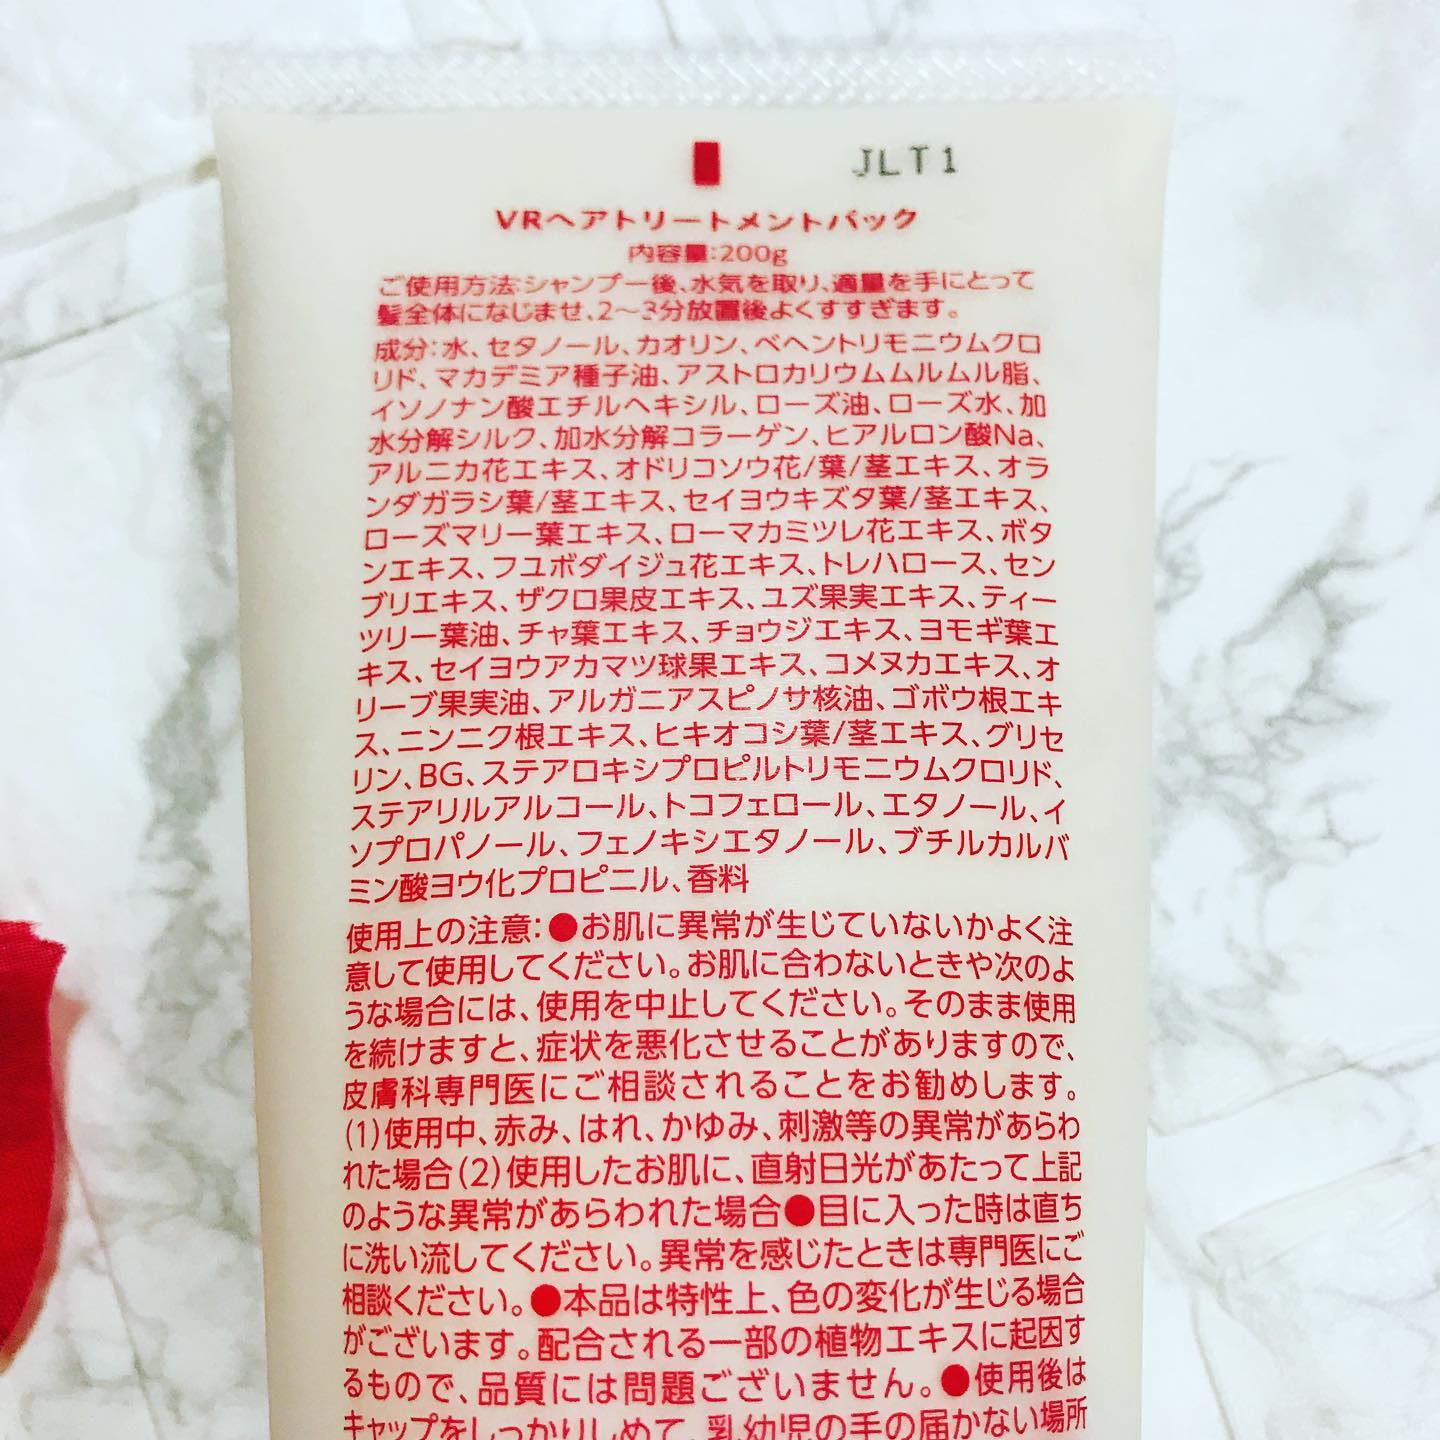 JLT1
VRヘアトリートメントパック
内容量:200g
ご使用方法:シャンプー後、水気を取り、適量を手にとって
髪全体になじませ、2〜3分放置後よくすすぎます。
成分:水、セタノール、カオリン、ベヘントリモニウムクロ
リド、マカデミア種子油、アストロカリウムムルムル脂、
イソノナン酸エチルヘキシル、ローズ油、ローズ水、加
水分解シルク、加水分解コラーゲン、ヒアルロン酸Na、
アルニカ花エキス、オドリコソウ花/葉/茎エキス、オラ
ンダガラシ葉/茎エキス、セイヨウキズタ葉/茎エキス、
ローズマリー葉エキス、ローマカミツレ花エキス、ボタ
ンエキス、フユボダイジュ花エキス、トレハロース、セン
ブリエキス、ザクロ果皮エキス、ユズ果実エキス、ティー
ツリー葉油、チャ葉エキス、チョウジエキス、ヨモギ葉エ
キス、セイヨウアカマツ球果エキス、コメヌカエキス、オ
リーブ果実油、アルガニアスピノサ核油、ゴボウ根エキ
ス、ニンニク根エキス、ヒキオコシ葉/茎エキス、グリセ
リン、BG、ステアロキシプロピルトリモニウムクロリド、
ステアリルアルコール、トコフェロール、エタノール、イ
ソプロパノール、フェノキシエタノール、ブチルカルバ
ミン酸ヨウ化プロピニル、香料
使用上の注意:●お肌に異常が生じていないかよく注
意して使用してください。お肌に合わないときや次のよ
うな場合には、使用を中止してください。そのまま使用
を続けますと、症状を悪化させることがありますので、
皮膚科専門医にご相談されることをお勧めします。
(1)使用中、赤み、はれ、かゆみ、刺激等の異常があらわ
れた場合(2)使用したお肌に、直射日光があたって上記
のような異常があらわれた場合●目に入った時は直ち
に洗い流してください。異常を感じたときは専門医にご
相談ください。●本品は特性上、色の変化が生じる場合
がございます。配合される一部の植物エキスに起因す
るもので、品質には問題ございません。●使用後は
キャップをしっかりしめて、乳幼児の手の届かない場所